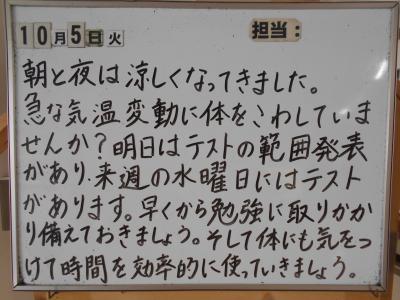 10月5日火 担当:
朝と夜は涼しくなってきました。
急な気温変動に体をこわしていま
せんか?明日はテストの範囲発表
があり、来週の水曜日にはテスト
があります。早くから勉強に取りかか
り備えておきましょう。そして体にも気をつ
けて時間を効率的に使っていきましょう。